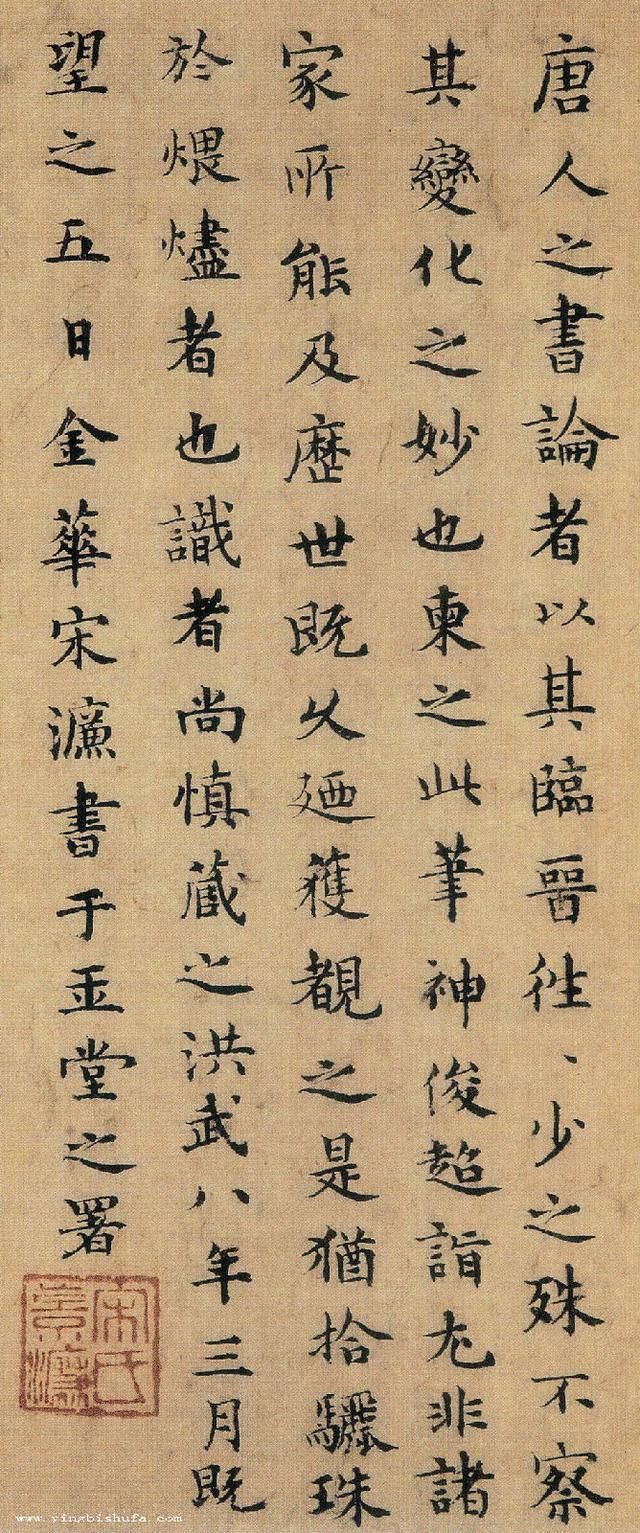 唐人之書論者以其臨晉往、少之殊不察
其變化之妙也柬之此筆神俊超詣尤非諸
家所能及歷世既久廼獲覩之是猶拾驪珠
於煨燼者也識者尚慎藏之洪武八年三月既
望之五日金華宋濂書于玉堂之署
宋氏景濂
www.yingbishufa.com